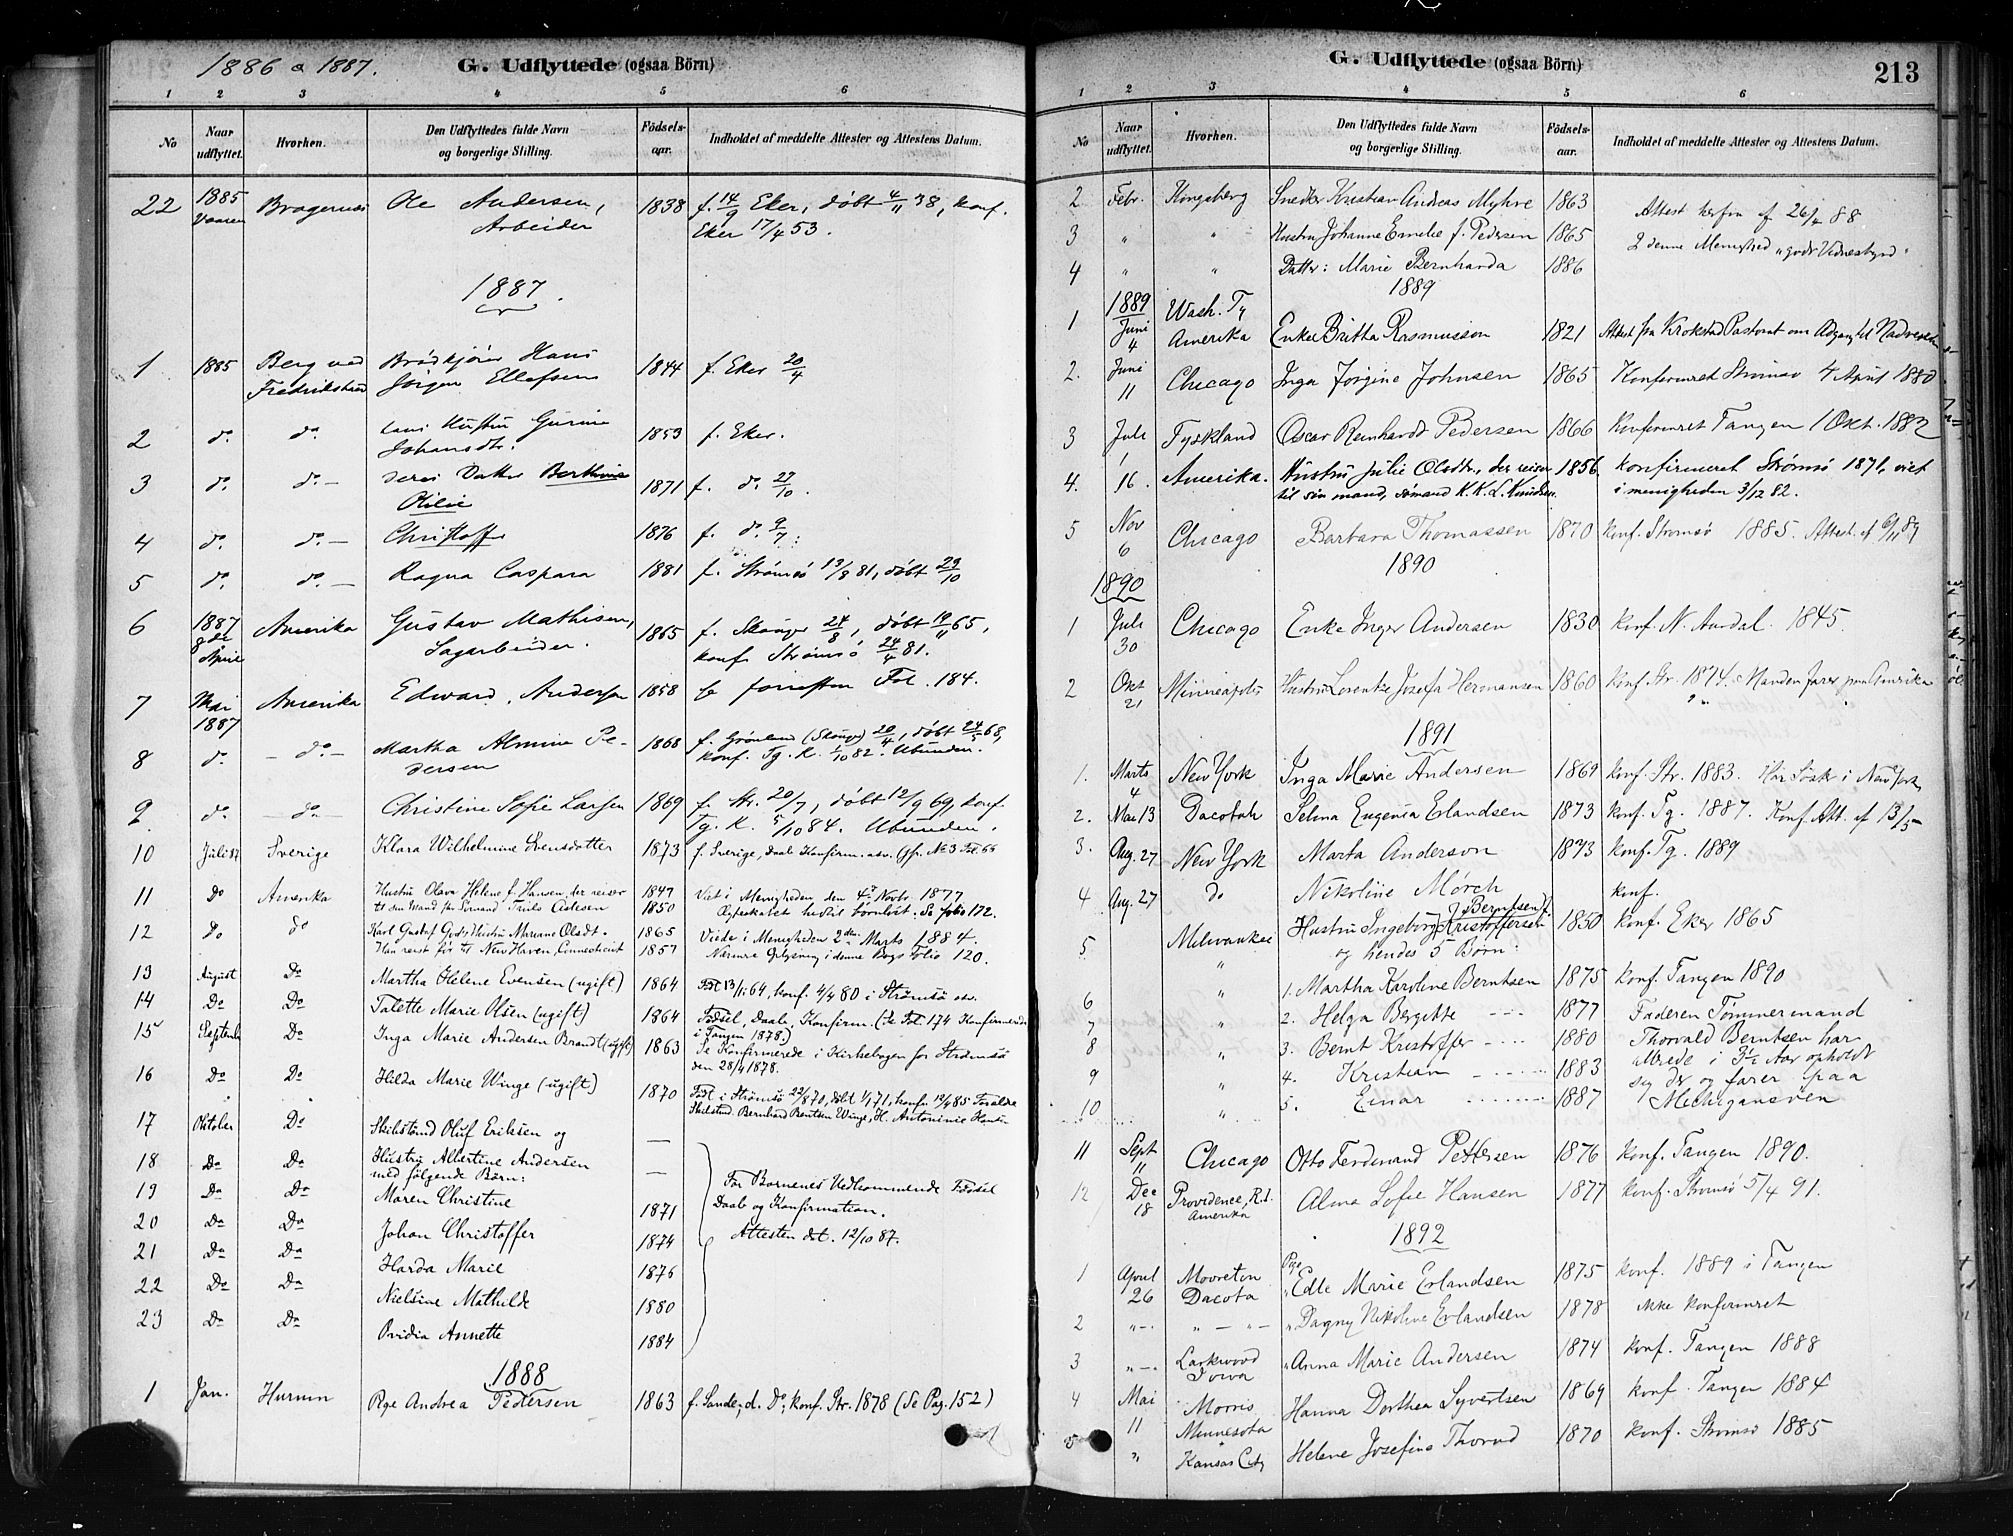 1886 & 1887.
G. Udflyttede (ogsaa Börn)
1 2 3 4 5 6
No
Naar udflyttet.
Hvorhen.
Den Udflyttedes fulde Navn og borgerlige Stilling.
Födsels-aar.
Indholdet af meddelte Attester og Attestens Datum.
22 1885 Vaaren Bragernes Ole Andersen, 1838 f. 14/9 Eker, döbt 4/11 38, konf.
Arbeider Eker 17/4 53.
1887.
1 1885 Berg ved Brödkjörer Hans 1844 f. Eker 20/4
Fredrikshald Jörgen Ellefsen
2 do. do. hans Hustru Gurine 1853 f. Eker.
Johansdtr.
3 do. do. - deres Datter Berthine 1871 f. do. 27/10.
Otilie
4 do. do. - Christoffer 1876 f. do. 9/7.
5 do. do. - Ragna Caspara 1881 f. Strømsö 13/8 81, döbt 23/10
6 1887 8de April Amerika Gustav Mathisen, 1865 f. Skouger 24/8, döbt 19/11 65,
Sagarbeider. konf. Strømsö 24/4 81.
7 Mai 1887 Amerika Edward Andersen 1858 Fol. 184.
8 do. - do. - Martha Almine Pe- 1868 f. Grönland (Skouger) 20/4, döbt 24/5 68,
dersen konf. Tg. K. 1/10 82. Ubunden.
9 do. - do. - Christine Sofie Larsen 1869 f. Str. 20/7, döbt 12/9 69, konf.
Tg. K. 5/10 84. Ubunden.
10 Juli 87 Sverige Klara Wilhelmine Svensdatter 1873 f. Sverige, Daab Konfirm. osv. Gfr. No 3 Fol 65
11 Do Amerika Hustru Olava Helene f. Hansen, der reiser 1847 Viet i Menigheden den 4de Novbr. 1877
til sin Mand før Sømand Truls Adesen 1850 Se folio 172.
12 Do do Karl Gustaf Hustru Mariane Olsdt. 1865 Viede i Menigheden 2den Marts 1884.
Han reist før til New Haven, Connecticut 1857 Nærmere Oplysning i denne Bogs Folio 120.
13 August Do Martha Helene Evensen (ugift) 1864 Født 13/11 64, konf. 4/4 80 i Strømsö osv.
14 Do Do Talette Marie Olsen (ugift) 1864 Födsel, Daab, Konfirm. (Se Fol. 174 Konfirmerede
i Tangen 1878.)
15 Septemb Do Inga Marie Andersen Brandt (ugift) 1863 Se Konfirmerede i Kirkebogen for Strömsö
den 28/4 1878.
16 Do Do Hilda Marie Winge (ugift) 1870 Födt i Strømsö 22/8 70, döbt 1/1 71, konfr. 12/4 85 Forældre
Skibstöd. Bernhard Berntsen Winge, H. Antoninie Hansen
17 Oktober Do Skibstömd Oluf Eriksen og —
18 Do Do Hustru Albertine Andersen —
med følgende Børn:
19 Do Do Maren Christine 1871
20 Do Do Johan Christoffer 1874
21 Do Do Harda Marie 1876
22 Do Do Nielsine Mathilde 1880
23 Do Do Ovidia Annette 1884
For Børnenes Vedkommende Födsel
Daab og Konfirmation.
Attesten dat. 12/10 87.
1888
1 Jan. Hurum Pige Andrea Pedersen 1863 f. Sande, d. Do, konf. Str. 1878 (Se Pag. 152)
G. Udflyttede (ogsaa Börn)
213
1 2 3 4 5 6
No
Naar udflyttet.
Hvorhen.
Den Udflyttedes fulde Navn og borgerlige Stilling.
Födsels-aar.
Indholdet af meddelte Attester og Attestens Datum.
2 Febr. Kongsberg Snedker Kristian Andreas Myhre 1863 Attest herfra af 26/4 88
3 " " Hustru Johanne Emelie f. Pedersen 1865 I denne Menighed "godt Vidnesbyrd"
4 " " Datter: Marie Bernharda 1886
1889
1 1889 Juni 4 Wash. Ty Amerika Enke Britha Rasmussen 1821 Attest fra Krokstad Pastorat om Adgang til Nadveren
2. Juni 11 Chicago Inga Jörgine Johnsen 1865 Konfirmeret Strömsö 4 April 1880
3 Juli 1 Tyskland Oscar Reinhardt Pedersen 1866 Konfirmeret Tangen 1 Okt. 1882
4. 16. Amerika. Hustru Julie Olsdtr., der reiser 1856 Konfirmeret Strømsö 1871, viet
til sin mand, sömand K. K. L. Knudsen i menigheden 3/12 82.
5 Nov 6 Chicago Barbara Thomassen 1870 konf. Strömsö 1885. Attest. af 6/11 89
1890
1890
1 Juli 30 Chicago Enke Inger Andersen 1830 konf. N. Aurdal. 1845.
2 Okt 21 Minneapolis Hustru Lorentze Josefa Hermansen 1860 konf. Str. 1874. Manden farer paa Amerika
1891
1. Marts 4 New York Inga Marie Andersen 1869 konf. Str. 1883. Har Söster i New York
2. Mai 13 Dacotah Selma Eugenia Erlandsen 1873 konf. Tg. 1887. Konf. Att. af 13/5
3. Aug. 27 New York Marta Anderson 1873 konf. Tg. 1889
4 Aug. 27 do Nikoline Mörch konf.
5 Milwaukee Hustru Ingeborg Berntsen f. Kristoffersen 1850 konf. Eker 1865
" og hendes 5 Börn:
6 " 1. Martha Karoline Berntsen 1875 konf. Tangen 1890
7 " 2. Helga Bergitte - - - 1877 Faderen Tömmermand
8 " 3. Bernt Kristoffer - - - 1880 Thorvald Berntsen har
9 " 4. Kristian - - - 1883 allerede i 3½ Aar opholdt
10 " 5. Einar - - - 1887 sig der og farer paa
Michigansöen
11 Sept 11 Chicago Otto Ferdinand Pettersen 1876 konf. Tangen 1890.
12 Dec 18 Providence, R.I. Amerika Alma Sofie Hansen 1877 konf. Strömsö 5/4 91.
1892
1 April 26 Mooreton Dacota Pige Edle Marie Erlandsen 1875 konf. 1889 i Tangen
2 " - " - " - " Dagny Nikoline Erlandsen 1878 ikke konfirmeret
3 " - Larkwood Iowa " Anna Marie Andersen 1874 konf. Tangen 1888
4 Mai 11 Morris Minnesota Hanna Dorthea Syvertsen 1869 konf. Tangen 1884
5 " Kansas City Helene Josefine Thorud 1870 konf. Strömsö 1885